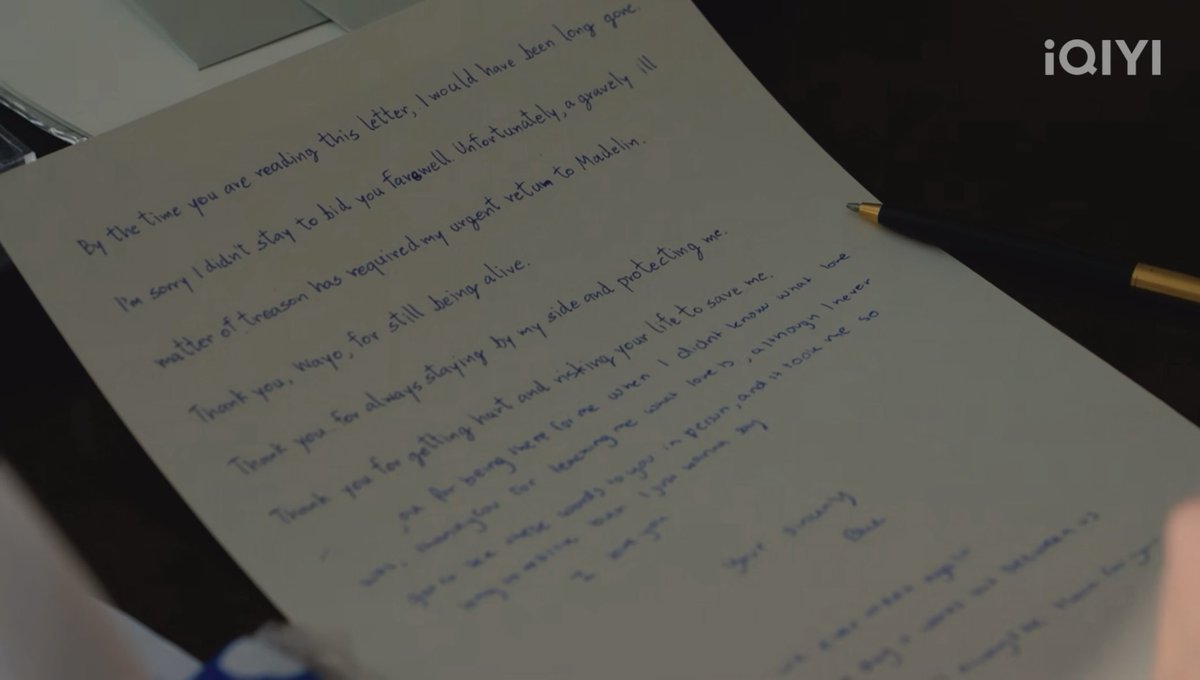 iQIYI
By the time you are reading this letter, I would have been long gone.
I'm sorry I didn't stay to bid you farewell. Unfortunately, a gravely ill
matter of treason has required my urgent return to Madelin.
Thank you, Wayo, for still being alive.
Thank you for always staying by my side and protecting me.
Thank you for getting hurt and risking your life to save me.
for being there for me when I didn't know what love
was. for teaching me what love is, although I never
these words to you in person, and it took me so
long I just wanna say
I love you
Your sincerely
ever meet again
between us